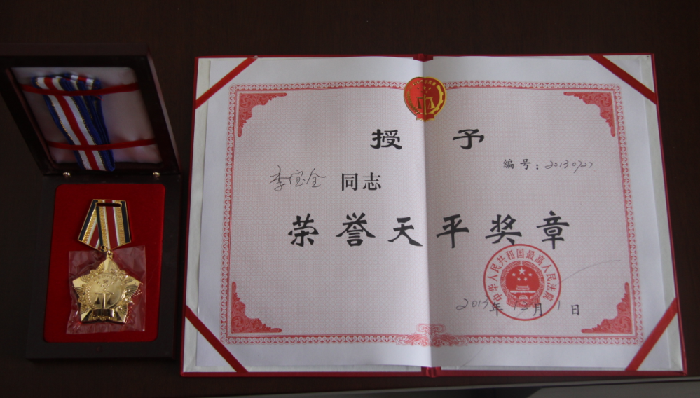 授予
编号:
李宝全 同志
荣誉天平奖章
中华人民共和国最高人民法院
2013年 月1日